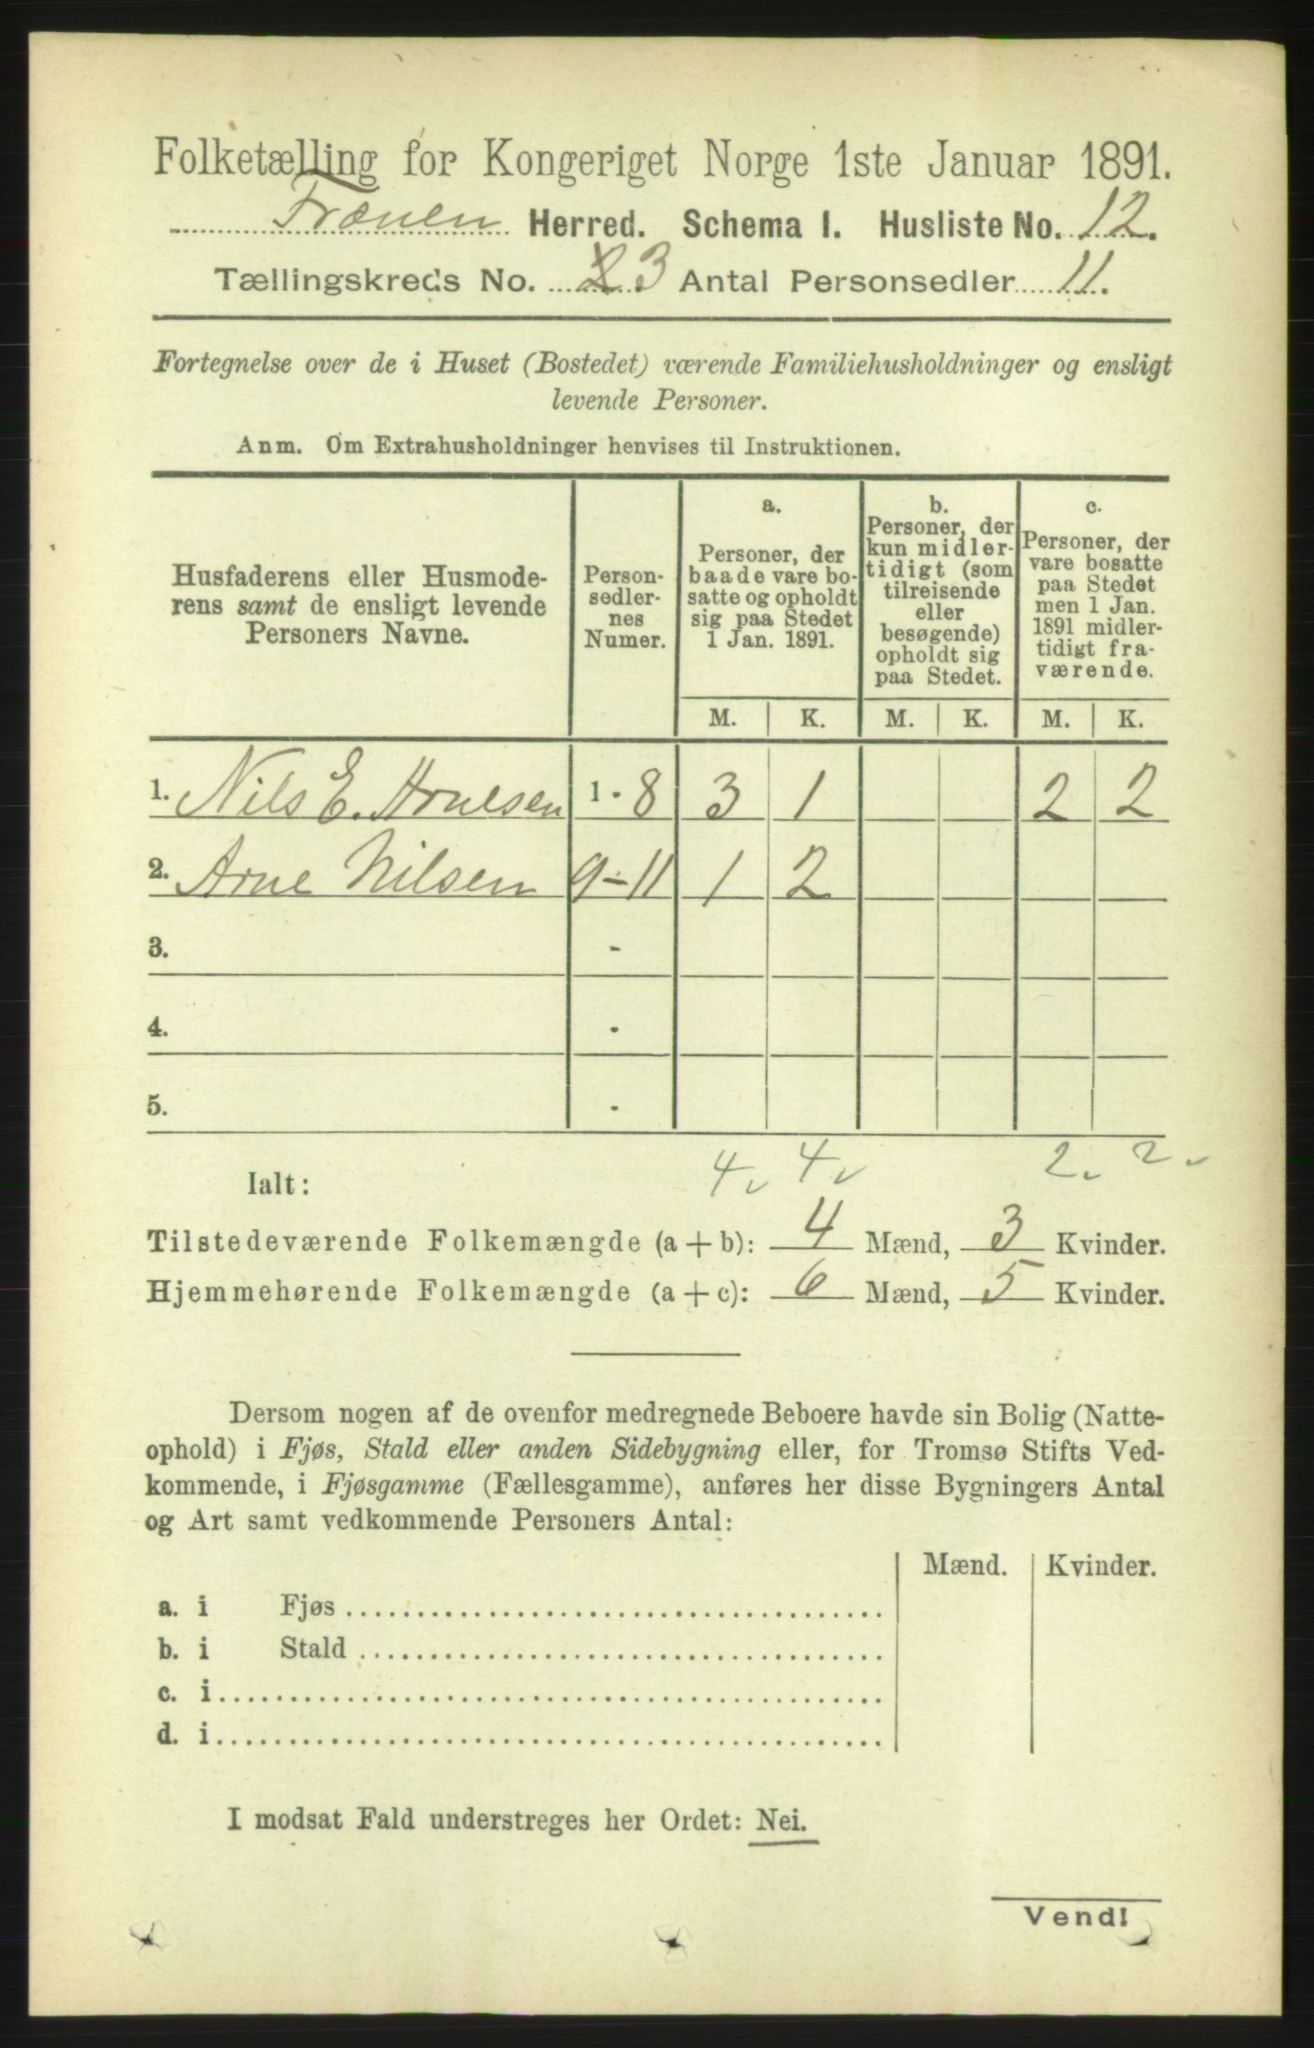 Folketælling for Kongeriget Norge 1ste Januar 1891.
Trænen Herred. Schema I. Husliste No. 12.
Tællingskreds No. 2 3 Antal Personsedler 11.
Fortegnelse over de i Huset (Bostedet) værende Familiehusholdninger og ensligt
levende Personer.
Anm. Om Extrahusholdninger henvises til Instruktionen.
Husfaderens eller Husmode-
rens samt de ensligt levende
Personers Navne.
Person-
sedler-
nes
Numer.
a.
Personer, der
baade vare bo-
satte og opholdt
sig paa Stedet
1 Jan. 1891.
b.
Personer, der
kun midler-
tidigt (som
tilreisende
eller
besøgende)
opholdt sig
paa Stedet.
c.
Personer, der
vare bosatte
paa Stedet
men 1 Jan.
1891 midler-
tidigt fra-
værende.
M. K. M. K. M. K.
1. Nils E. Arnesen 1 - 8 3 1 2 2
2. Arne Nilsen 9 - 11 1 2
3. -
4. -
5. -
Ialt: 4 4 2 2
Tilstedeværende Folkemængde (a + b): 4 Mænd, 3 Kvinder.
Hjemmehørende Folkemængde (a + c): 6 Mænd, 5 Kvinder.
Dersom nogen af de ovenfor medregnede Beboere havde sin Bolig (Natte-
ophold) i Fjøs, Stald eller anden Sidebygning eller, for Tromsø Stifts Ved-
kommende, i Fjøsgamme (Fællesgamme), anføres her disse Bygningers Antal
og Art samt vedkommende Personers Antal:
Mænd. Kvinder.
a. i Fjøs
b. i Stald
c. i
d. i
I modsat Fald understreges her Ordet: Nei.
Vend!